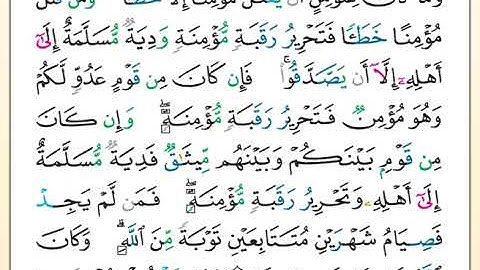 وَمَا كَانَ لِمُؤْمِنٍ أَن يَقْتُلَ مُؤْمِنًا إِلَّا خَطَـًٔا ۚ وَمَن قَتَلَ
مُؤْمِنًا خَطَـًٔا فَتَحْرِيرُ رَقَبَةٍ مُّؤْمِنَةٍ وَدِيَةٌ مُّسَلَّمَةٌ إِلَىٰٓ
أَهْلِهِۦٓ إِلَّآ أَن يَصَّدَّقُوا۟ ۚ فَإِن كَانَ مِن قَوْمٍ عَدُوٍّ لَّكُمْ
وَهُوَ مُؤْمِنٌ فَتَحْرِيرُ رَقَبَةٍ مُّؤْمِنَةٍ ۖ وَإِن كَانَ
مِن قَوْمٍۭ بَيْنَكُمْ وَبَيْنَهُم مِّيثَـٰقٌ فَدِيَةٌ مُّسَلَّمَةٌ
إِلَىٰٓ أَهْلِهِۦ وَتَحْرِيرُ رَقَبَةٍ مُّؤْمِنَةٍ ۖ فَمَن لَّمْ يَجِدْ
فَصِيَامُ شَهْرَيْنِ مُتَتَابِعَيْنِ تَوْبَةً مِّنَ ٱللَّهِ ۗ وَكَانَ